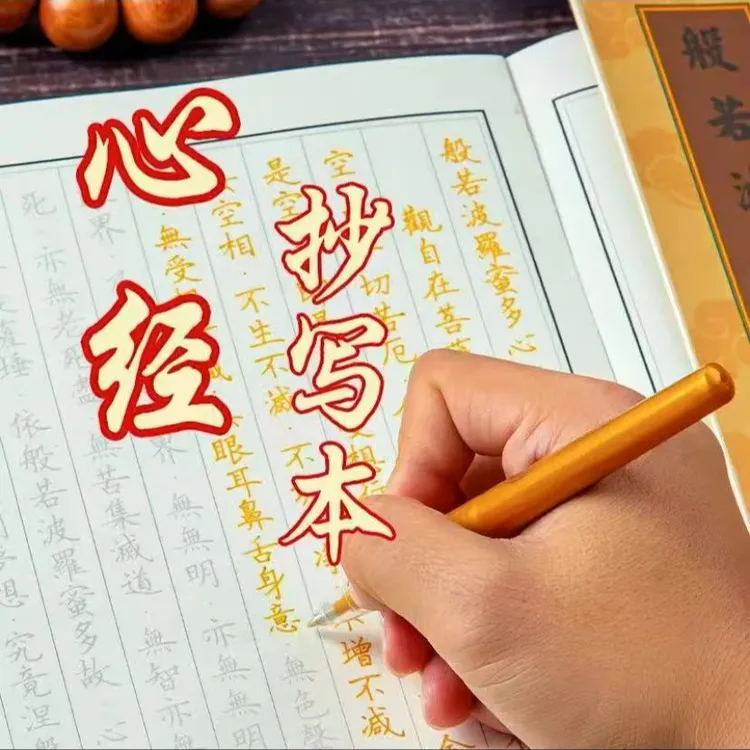 心经
抄写本
般若波羅蜜多心
觀自在菩
空
切苦厄
是空
想
空相·不生不滅·不
增不減
無受
眼耳鼻舌身意
無色聲
界
界·無無明·亦無無明
死·亦無老死盡
無苦集滅道·無智亦
埵·依般若波羅蜜多故·心
想·究竟涅
般若波